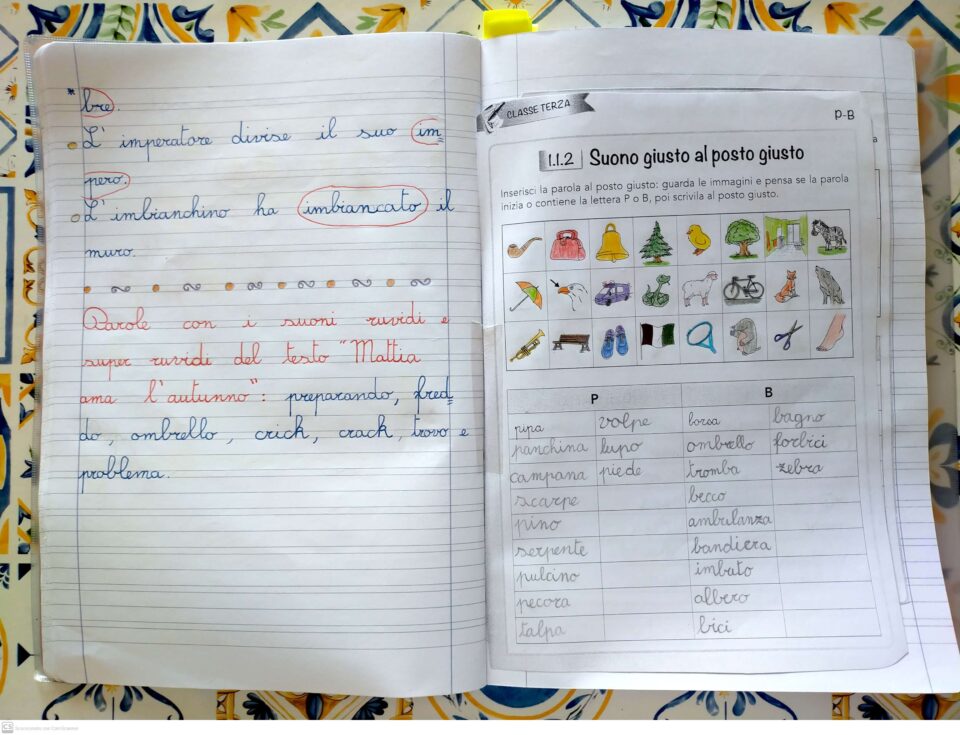 * bre.
L' imperatore divise il suo im
pero.
L' imbianchino ha imbiancato il
muro.
Parole con i suoni ruvidi e
super ruvidi del testo "Mattia
ama l'autunno": preparando, fred
do, ombrello, crick, crack, trovo e
problema.
CLASSE TERZA
P-B
1.1.2 Suono giusto al posto giusto
Inserisci la parola al posto giusto: guarda le immagini e pensa se la parola
inizia o contiene la lettera P o B, poi scrivila al posto giusto.
P B
pipa volpe borsa bagno
panchina lupo ombrello forbici
campana piede tromba zebra
scarpe becco
pino ambulanza
serpente bandiera
pulcino imbuto
pecora albero
talpa bici
CS Scansionato con CamScanner